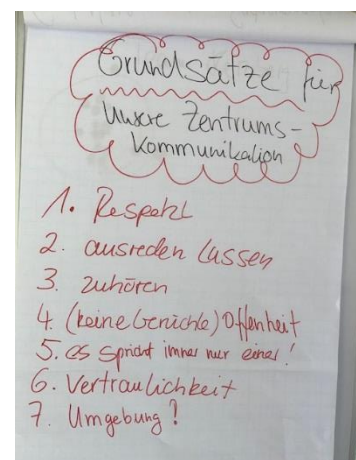 Grundsätze für
Unsere Zentrums-
Kommunikation
1. Respekt
2. ausreden lassen
3. zuhören
4. (keine Gerüchte) Offenheit
5. es spricht immer nur einer!
6. Vertraulichkeit
7. Umgebung?